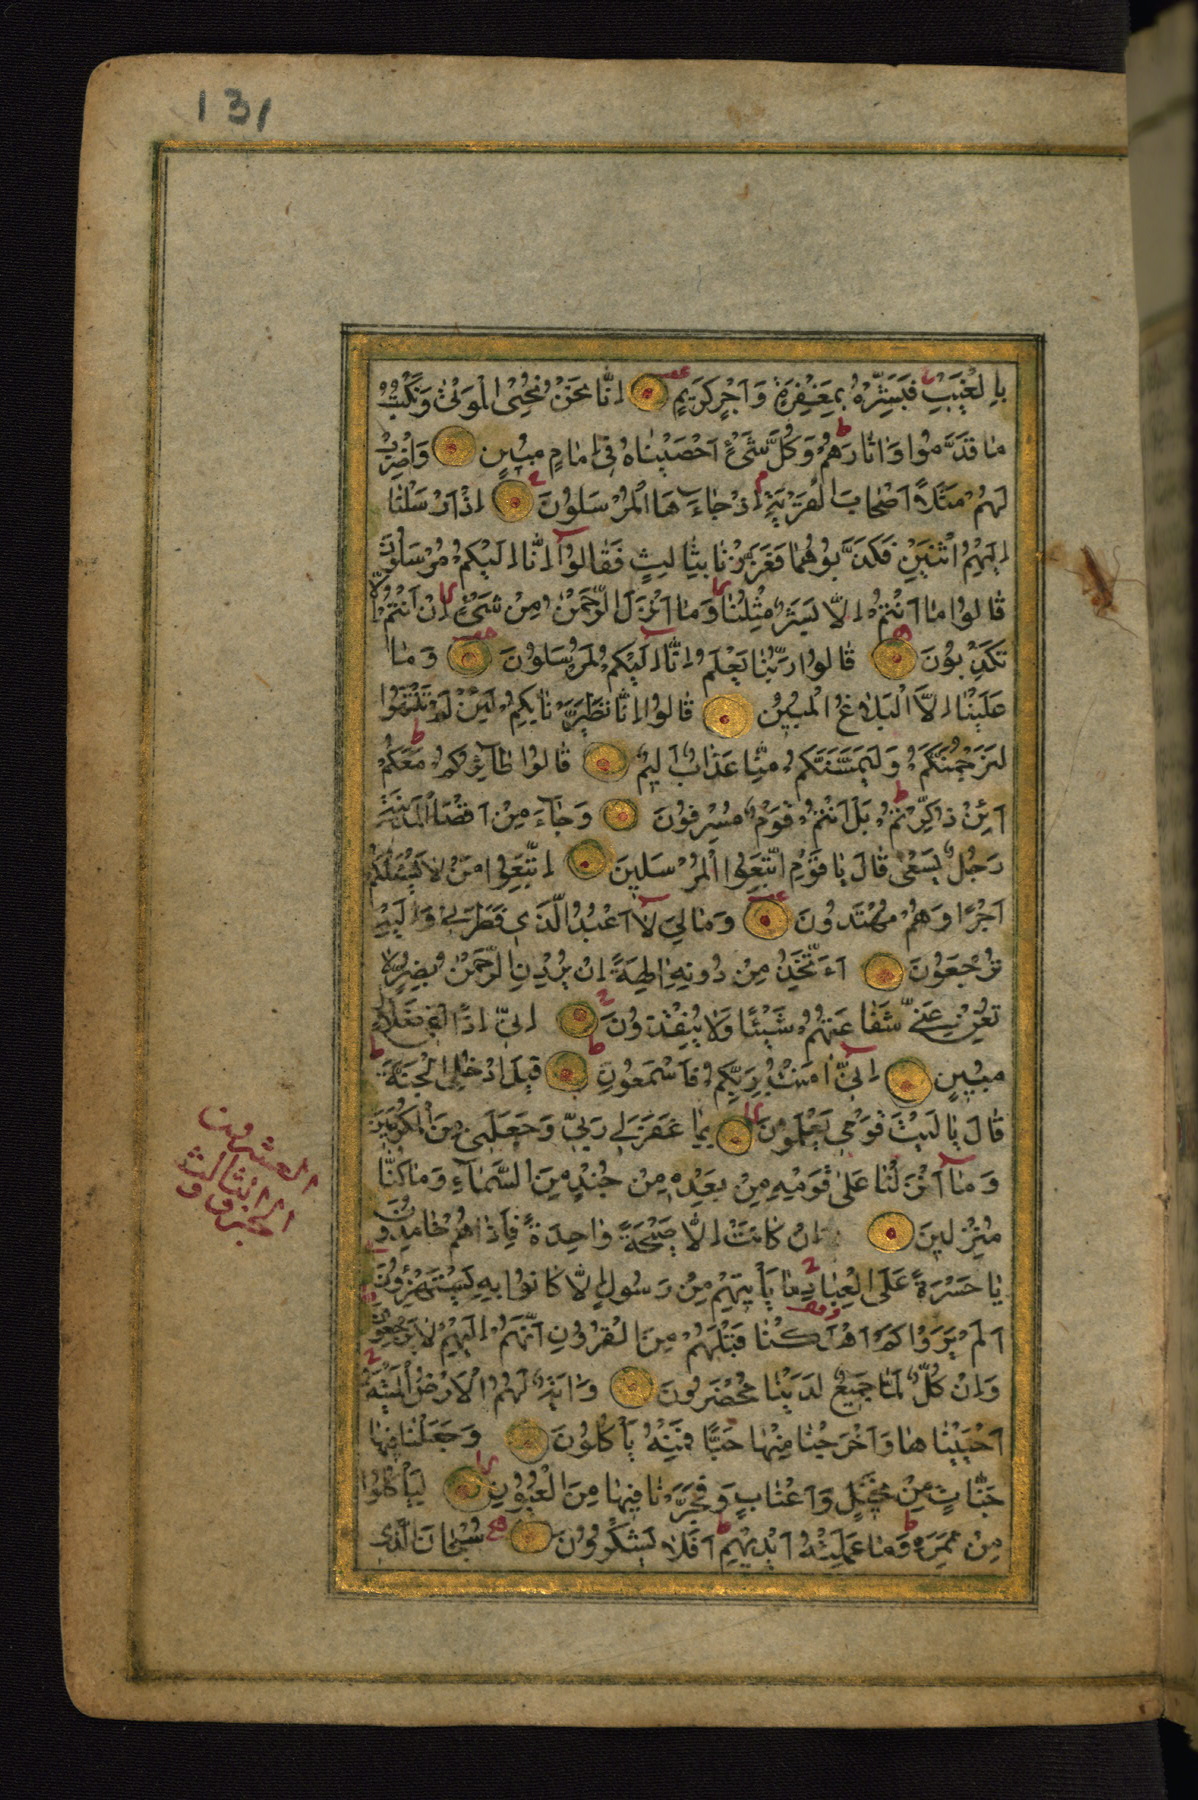 131
بِالْغَيْبِ فَبَشِّرْهُ بِمَغْفِرَةٍ وَاَجْرٍ كَرِيمٍ اِنَّا نَحْنُ نُحْيِى الْمَوْتٰى وَنَكْتُبُ
مَا قَدَّمُوا وَاٰثَارَهُمْ وَكُلَّ شَىْءٍ اَحْصَيْنَاهُ فِى اِمَامٍ مُبِينٍ وَاضْرِبْ
لَهُمْ مَثَلًا اَصْحَابَ الْقَرْيَةِ اِذْ جَاءَهَا الْمُرْسَلُونَ اِذْ اَرْسَلْنَا
اِلَيْهِمُ اثْنَيْنِ فَكَذَّبُوهُمَا فَعَزَّزْنَا بِثَالِثٍ فَقَالُوا اِنَّا اِلَيْكُمْ مُرْسَلُونَ
قَالُوا مَا اَنْتُمْ اِلَّا بَشَرٌ مِثْلُنَا وَمَا اَنْزَلَ الرَّحْمٰنُ مِنْ شَىْءٍ اِنْ اَنْتُمْ اِلَّا
تَكْذِبُونَ قَالُوا رَبُّنَا يَعْلَمُ اِنَّا اِلَيْكُمْ لَمُرْسَلُونَ وَمَا
عَلَيْنَا اِلَّا الْبَلَاغُ الْمُبِينُ قَالُوا اِنَّا تَطَيَّرْنَا بِكُمْ لَئِنْ لَمْ تَنْتَهُوا
لَنَرْجُمَنَّكُمْ وَلَيَمَسَّنَّكُمْ مِنَّا عَذَابٌ اَلِيمٌ قَالُوا طَائِرُكُمْ مَعَكُمْ
اَئِنْ ذُكِّرْتُمْ بَلْ اَنْتُمْ قَوْمٌ مُسْرِفُونَ وَجَاءَ مِنْ اَقْصَا الْمَدِينَةِ
رَجُلٌ يَسْعٰى قَالَ يَا قَوْمِ اتَّبِعُوا الْمُرْسَلِينَ اِتَّبِعُوا مَنْ لَا يَسْئَلُكُمْ
اَجْرًا وَهُمْ مُهْتَدُونَ وَمَا لِيَ لَا اَعْبُدُ الَّذِى فَطَرَنِى وَاِلَيْهِ
تُرْجَعُونَ ءَاَتَّخِذُ مِنْ دُونِهِ اٰلِهَةً اِنْ يُرِدْنِ الرَّحْمٰنُ بِضُرٍّ لَا
تُغْنِ عَنِّى شَفَاعَتُهُمْ شَيْئًا وَلَا يُنْقِذُونِ اِنِّى اِذًا لَفِى ضَلَالٍ
مُبِينٍ اِنِّى اٰمَنْتُ بِرَبِّكُمْ فَاسْمَعُونِ قِيلَ ادْخُلِ الْجَنَّةَ
قَالَ يَا لَيْتَ قَوْمِى يَعْلَمُونَ بِمَا غَفَرَ لِى رَبِّى وَجَعَلَنِى مِنَ الْمُكْرَمِينَ
وَمَا اَنْزَلْنَا عَلٰى قَوْمِهِ مِنْ بَعْدِهِ مِنْ جُنْدٍ مِنَ السَّمَاءِ وَمَا كُنَّا
مُنْزِلِينَ اِنْ كَانَتْ اِلَّا صَيْحَةً وَاحِدَةً فَاِذَا هُمْ خَامِدُونَ
يَا حَسْرَةً عَلَى الْعِبَادِ مَا يَأْتِيهِمْ مِنْ رَسُولٍ اِلَّا كَانُوا بِهِ يَسْتَهْزِؤُنَ
اَلَمْ يَرَوْا كَمْ اَهْلَكْنَا قَبْلَهُمْ مِنَ الْقُرُونِ اَنَّهُمْ اِلَيْهِمْ لَا يَرْجِعُونَ
وَاِنْ كُلٌّ لَمَّا جَمِيعٌ لَدَيْنَا مُحْضَرُونَ وَاٰيَةٌ لَهُمُ الْاَرْضُ الْمَيْتَةُ
اَحْيَيْنَاهَا وَاَخْرَجْنَا مِنْهَا حَبًّا فَمِنْهُ يَأْكُلُونَ وَجَعَلْنَا فِيهَا
جَنَّاتٍ مِنْ نَخِيلٍ وَاَعْنَابٍ وَفَجَّرْنَا فِيهَا مِنَ الْعُيُونِ لِيَأْكُلُوا
مِنْ ثَمَرِهِ وَمَا عَمِلَتْهُ اَيْدِيهِمْ اَفَلَا يَشْكُرُونَ سُبْحَانَ الَّذِى
الجزؤ الثالث و العشرون